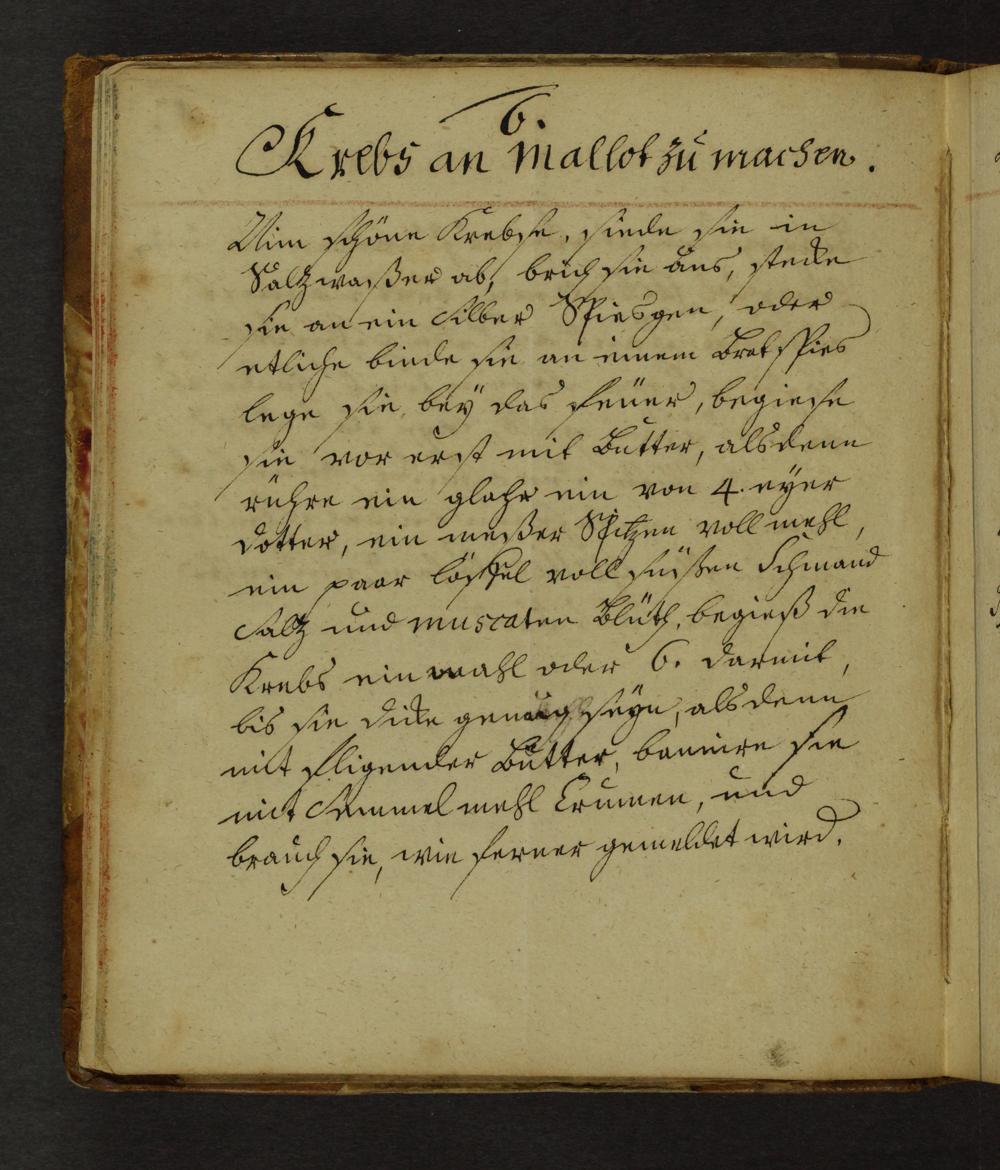 6.
Krebs an Mallot zu machen.
Nim schöne Krebse, siede sie in
Saltzwaßer ab, brich sie aus, stecke
sie an ein Silber Spiesgen, oder
etliche binde sie an einem Bratspies
lege sie beÿ das feüer, begiese
sie vor erst mit Butter, alsdenn
rühre ein glahr ein von 4. eÿer
dotter, ein meßer Spitzen voll mehl,
ein paar löffel voll süßen Schmand
Saltz und muscaten Blüth, begieß die
Krebs einmahl oder 6. darmit,
bis sie dicke genug seÿn, alsdenn
mit fligender Butter, bannire sie
mit Semmel mehl Crumen, und
brauch sie, wie ferner gemeldet wird.